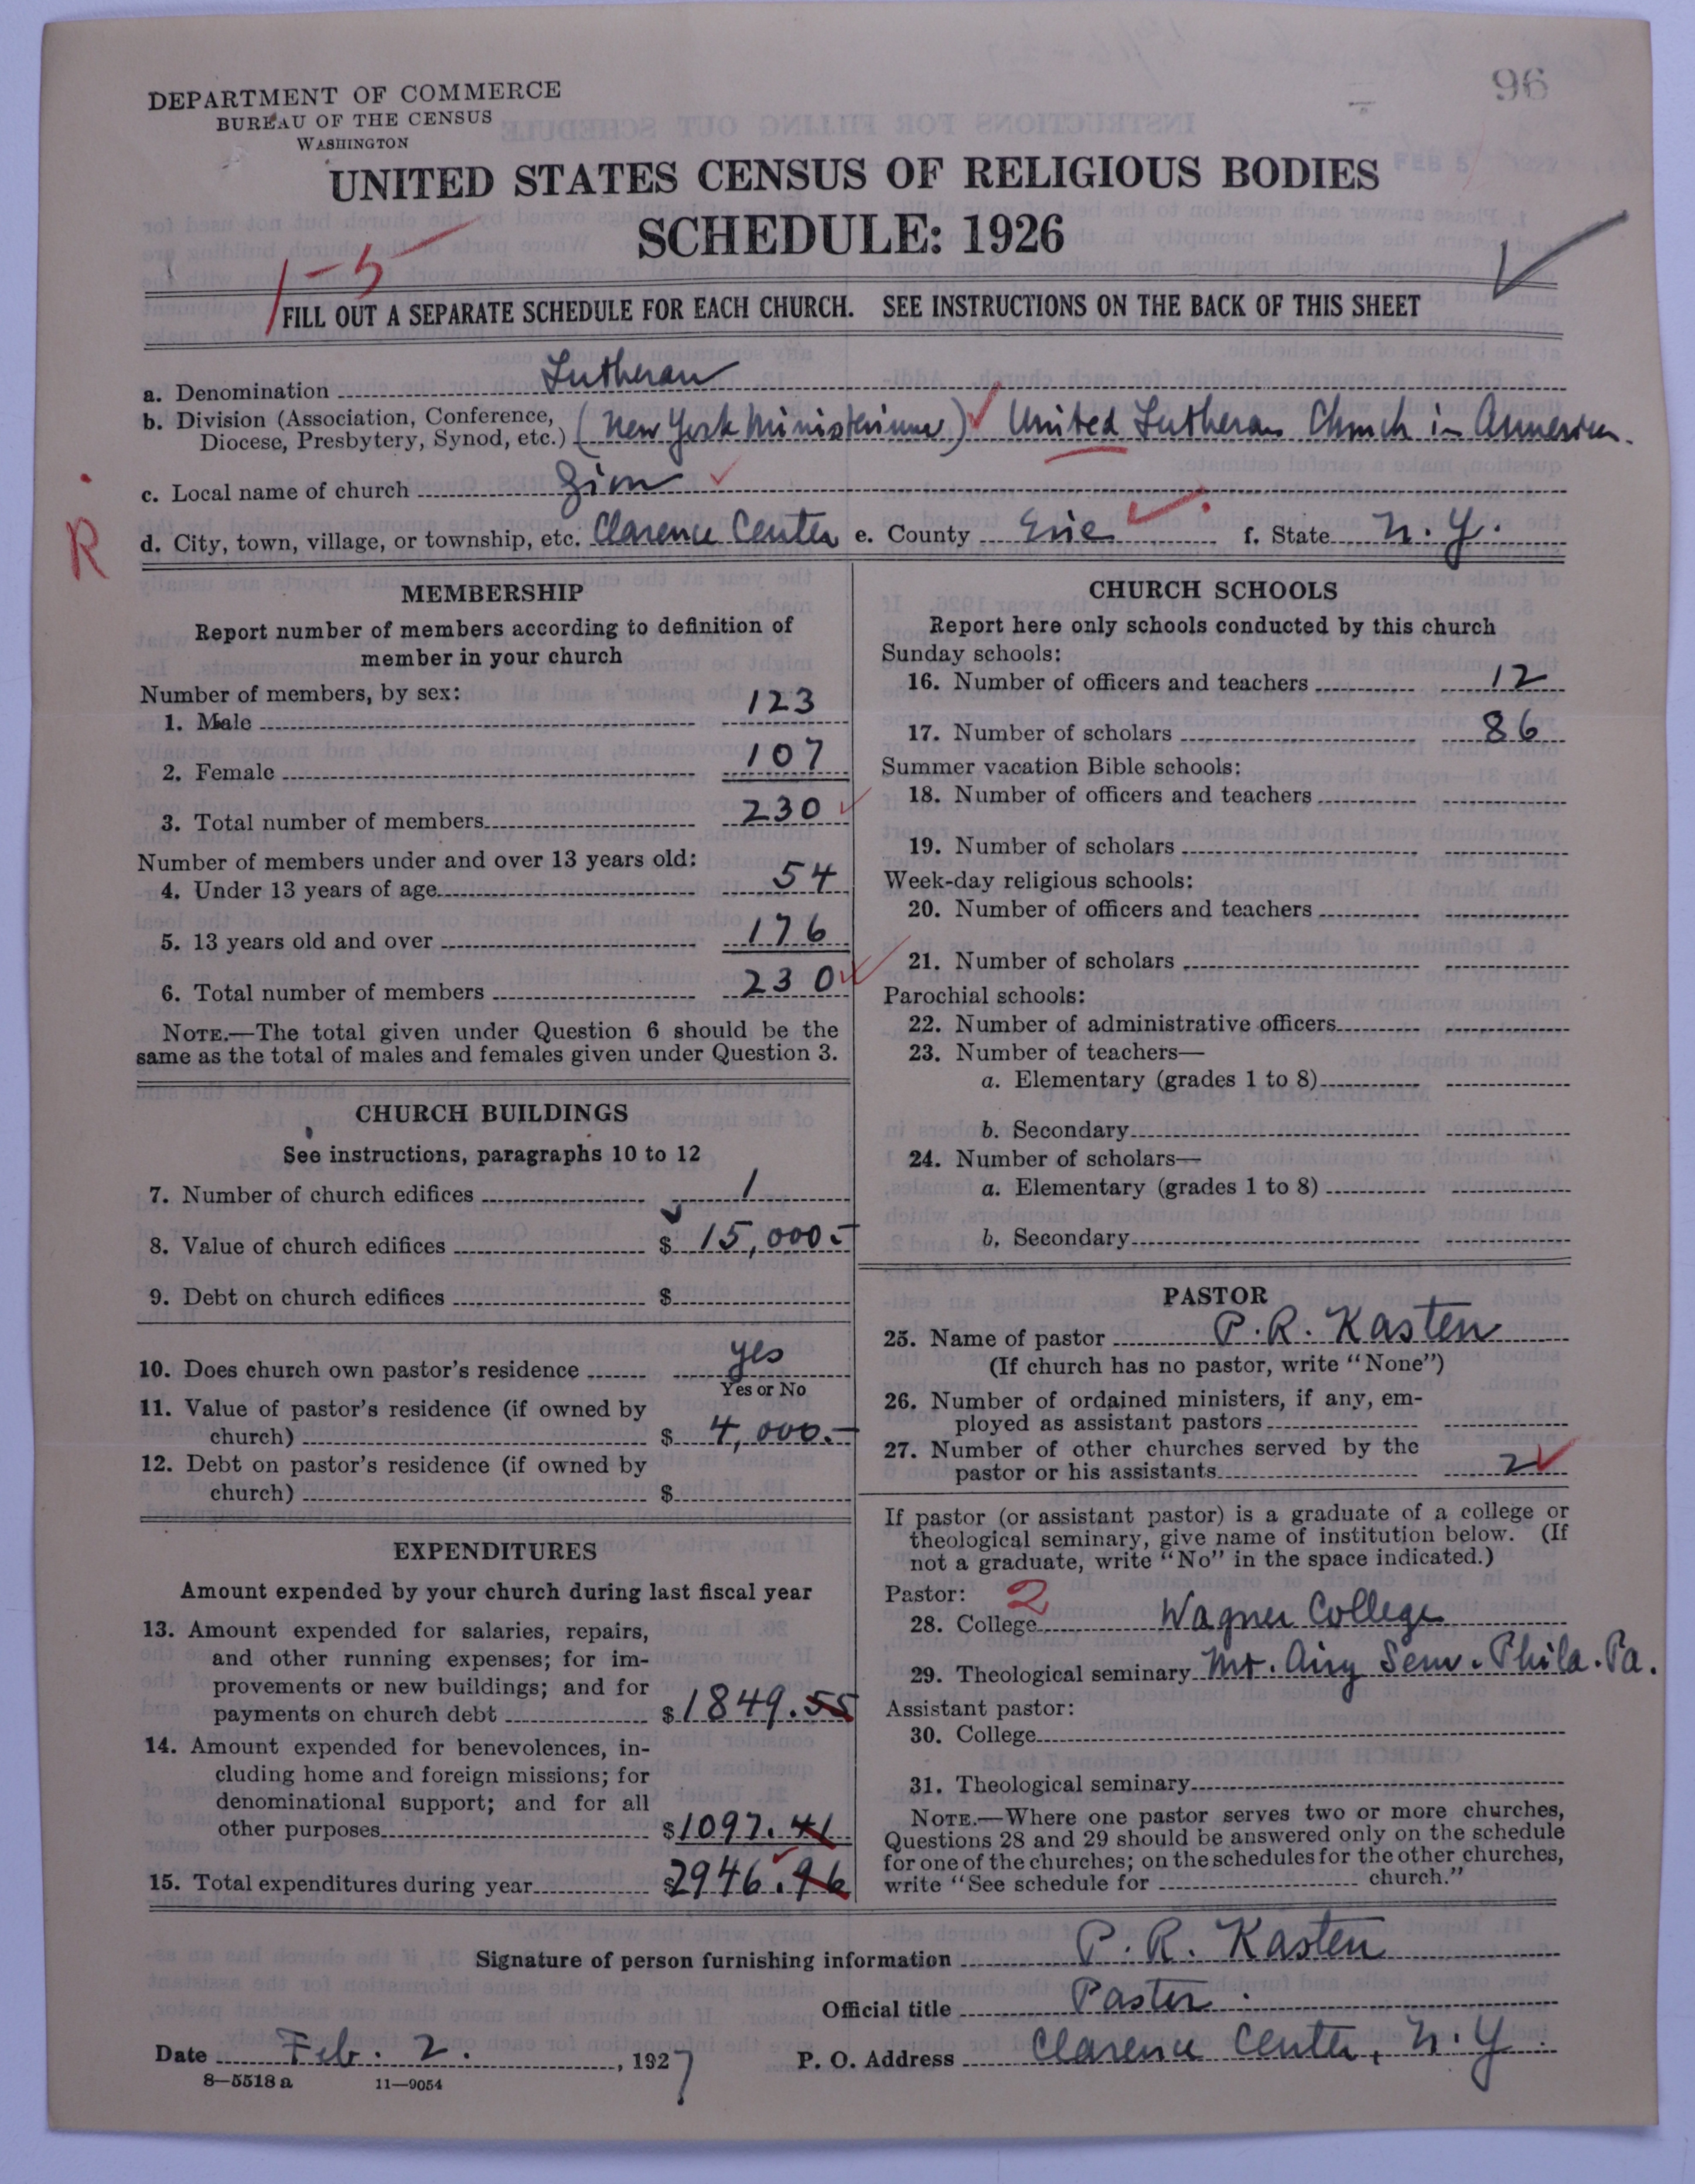 96
DEPARTMENT OF COMMERCE
BUREAU OF THE CENSUS
WASHINGTON
FEB 5 1927
UNITED STATES CENSUS OF RELIGIOUS BODIES
SCHEDULE: 1926
1-5
FILL OUT A SEPARATE SCHEDULE FOR EACH CHURCH. SEE INSTRUCTIONS ON THE BACK OF THIS SHEET
a. Denomination Lutheran
b. Division (Association, Conference, Diocese, Presbytery, Synod, etc.) (New York Ministerium) United Lutheran Church in America.
c. Local name of church Zion
R
d. City, town, village, or township, etc. Clarence Center e. County Erie f. State N. Y.
MEMBERSHIP
Report number of members according to definition of
member in your church
Number of members, by sex:
1. Male 123
2. Female 107
3. Total number of members 230
Number of members under and over 13 years old:
4. Under 13 years of age 54
5. 13 years old and over 176
6. Total number of members 230
NOTE.—The total given under Question 6 should be the
same as the total of males and females given under Question 3.
CHURCH BUILDINGS
See instructions, paragraphs 10 to 12
7. Number of church edifices 1
8. Value of church edifices $ 15,000.-
9. Debt on church edifices $
10. Does church own pastor's residence yes
Yes or No
11. Value of pastor's residence (if owned by
church) $ 4,000.-
12. Debt on pastor's residence (if owned by
church) $
EXPENDITURES
Amount expended by your church during last fiscal year
13. Amount expended for salaries, repairs,
and other running expenses; for im-
provements or new buildings; and for
payments on church debt $1849.55
14. Amount expended for benevolences, in-
cluding home and foreign missions; for
denominational support; and for all
other purposes $1097.41
15. Total expenditures during year $2946.96
CHURCH SCHOOLS
Report here only schools conducted by this church
Sunday schools:
16. Number of officers and teachers 12
17. Number of scholars 86
Summer vacation Bible schools:
18. Number of officers and teachers
19. Number of scholars
Week-day religious schools:
20. Number of officers and teachers
21. Number of scholars
Parochial schools:
22. Number of administrative officers
23. Number of teachers—
a. Elementary (grades 1 to 8)
b. Secondary
24. Number of scholars—
a. Elementary (grades 1 to 8)
b. Secondary
PASTOR
25. Name of pastor P. R. Kasten
(If church has no pastor, write "None")
26. Number of ordained ministers, if any, em-
ployed as assistant pastors
27. Number of other churches served by the
pastor or his assistants 2
If pastor (or assistant pastor) is a graduate of a college or
theological seminary, give name of institution below. (If
not a graduate, write "No" in the space indicated.)
Pastor: 2
28. College Wagner College
29. Theological seminary Mt. Airy Sem. Phila. Pa.
Assistant pastor:
30. College
31. Theological seminary
NOTE.—Where one pastor serves two or more churches,
Questions 28 and 29 should be answered only on the schedule
for one of the churches; on the schedules for the other churches,
write "See schedule for church."
Signature of person furnishing information P. R. Kasten
Official title Pastor.
Date Feb. 2. , 1927 P. O. Address Clarence Center, N. Y.
8—5518 a 11—9054